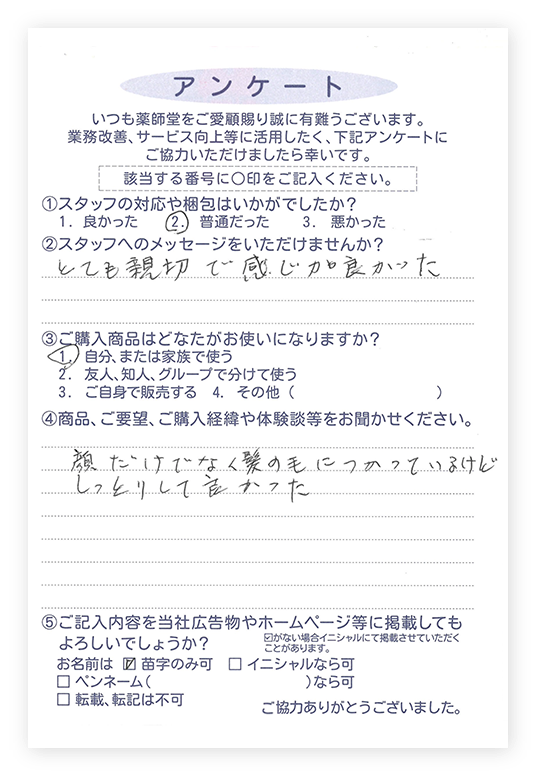 アンケート
いつも薬師堂をご愛顧賜り誠に有難うございます。
業務改善、サービス向上等に活用したく、下記アンケートに
ご協力いただけましたら幸いです。
該当する番号に○印をご記入ください。
①スタッフの対応や梱包はいかがでしたか？
1. 良かった　2. 普通だった　3. 悪かった
②スタッフへのメッセージをいただけませんか？
とても親切で感じが良かった
③ご購入商品はどなたがお使いになりますか？
1. 自分、または家族で使う
2. 友人、知人、グループで分けて使う
3. ご自身で販売する　4. その他（　　　）
④商品、ご要望、ご購入経緯や体験談等をお聞かせください。
顔だけでなく髪の毛につかっているけど
しっとりして良かった
⑤ご記入内容を当社広告物やホームページ等に掲載しても
よろしいでしょうか？
☑がない場合イニシャルにて掲載させていただく
ことがあります。
お名前は ☑ 苗字のみ可　□ イニシャルなら可
□ ペンネーム（　　　）なら可
□ 転載、転記は不可
ご協力ありがとうございました。